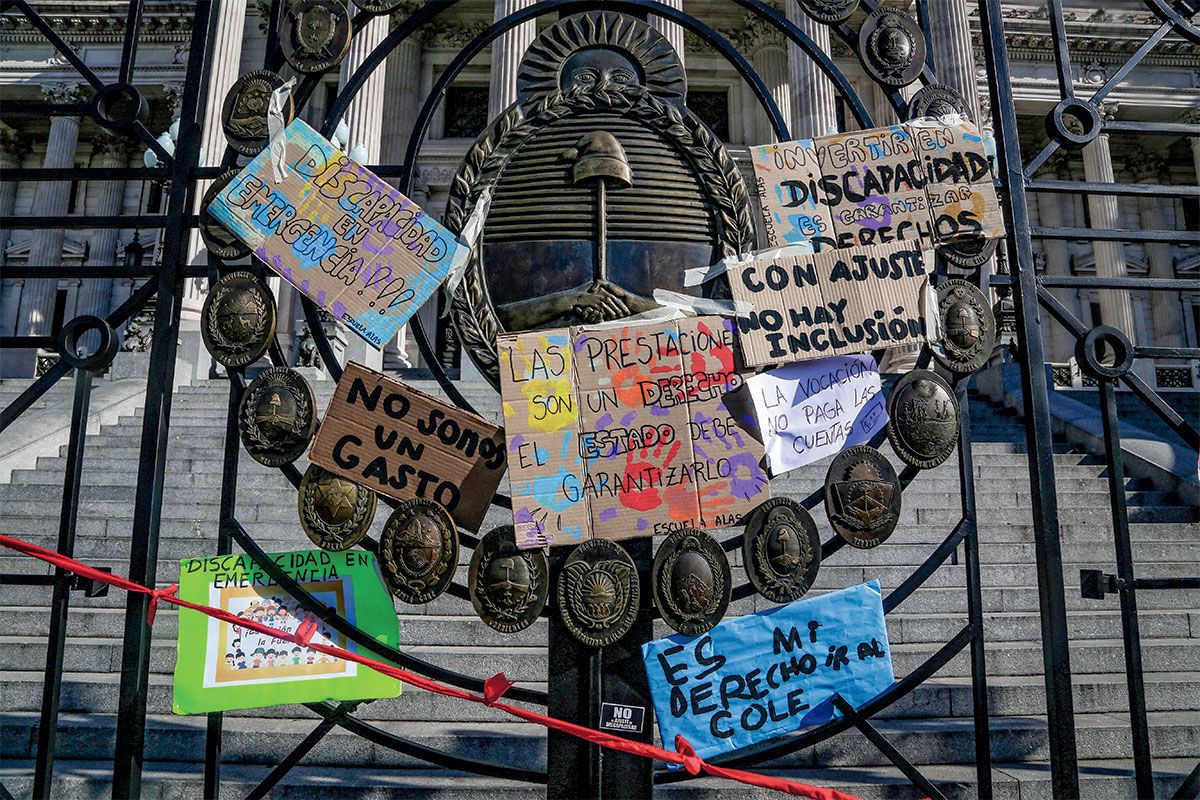 DISCAPACIDAD
EN
EMERGENCIA!!!
ESCUELA ALAS
INVERTIR EN
DISCAPACIDAD
ES GARANTIZAR
DERECHOS
ESCUELA ALAS
CON AJUSTE
NO HAY
INCLUSIÓN
LAS PRESTACIONE
SON UN DERECHO
EL ESTADO DEBE
GARANTIZARLO
ESCUELA ALAS
LA VOCACIÓN
NO PAGA LAS
CUENTAS
NO SOMOS
UN
GASTO
DISCAPACIDAD EN
EMERGENCIA
ES MI
DERECHO IR AL
COLE
NO